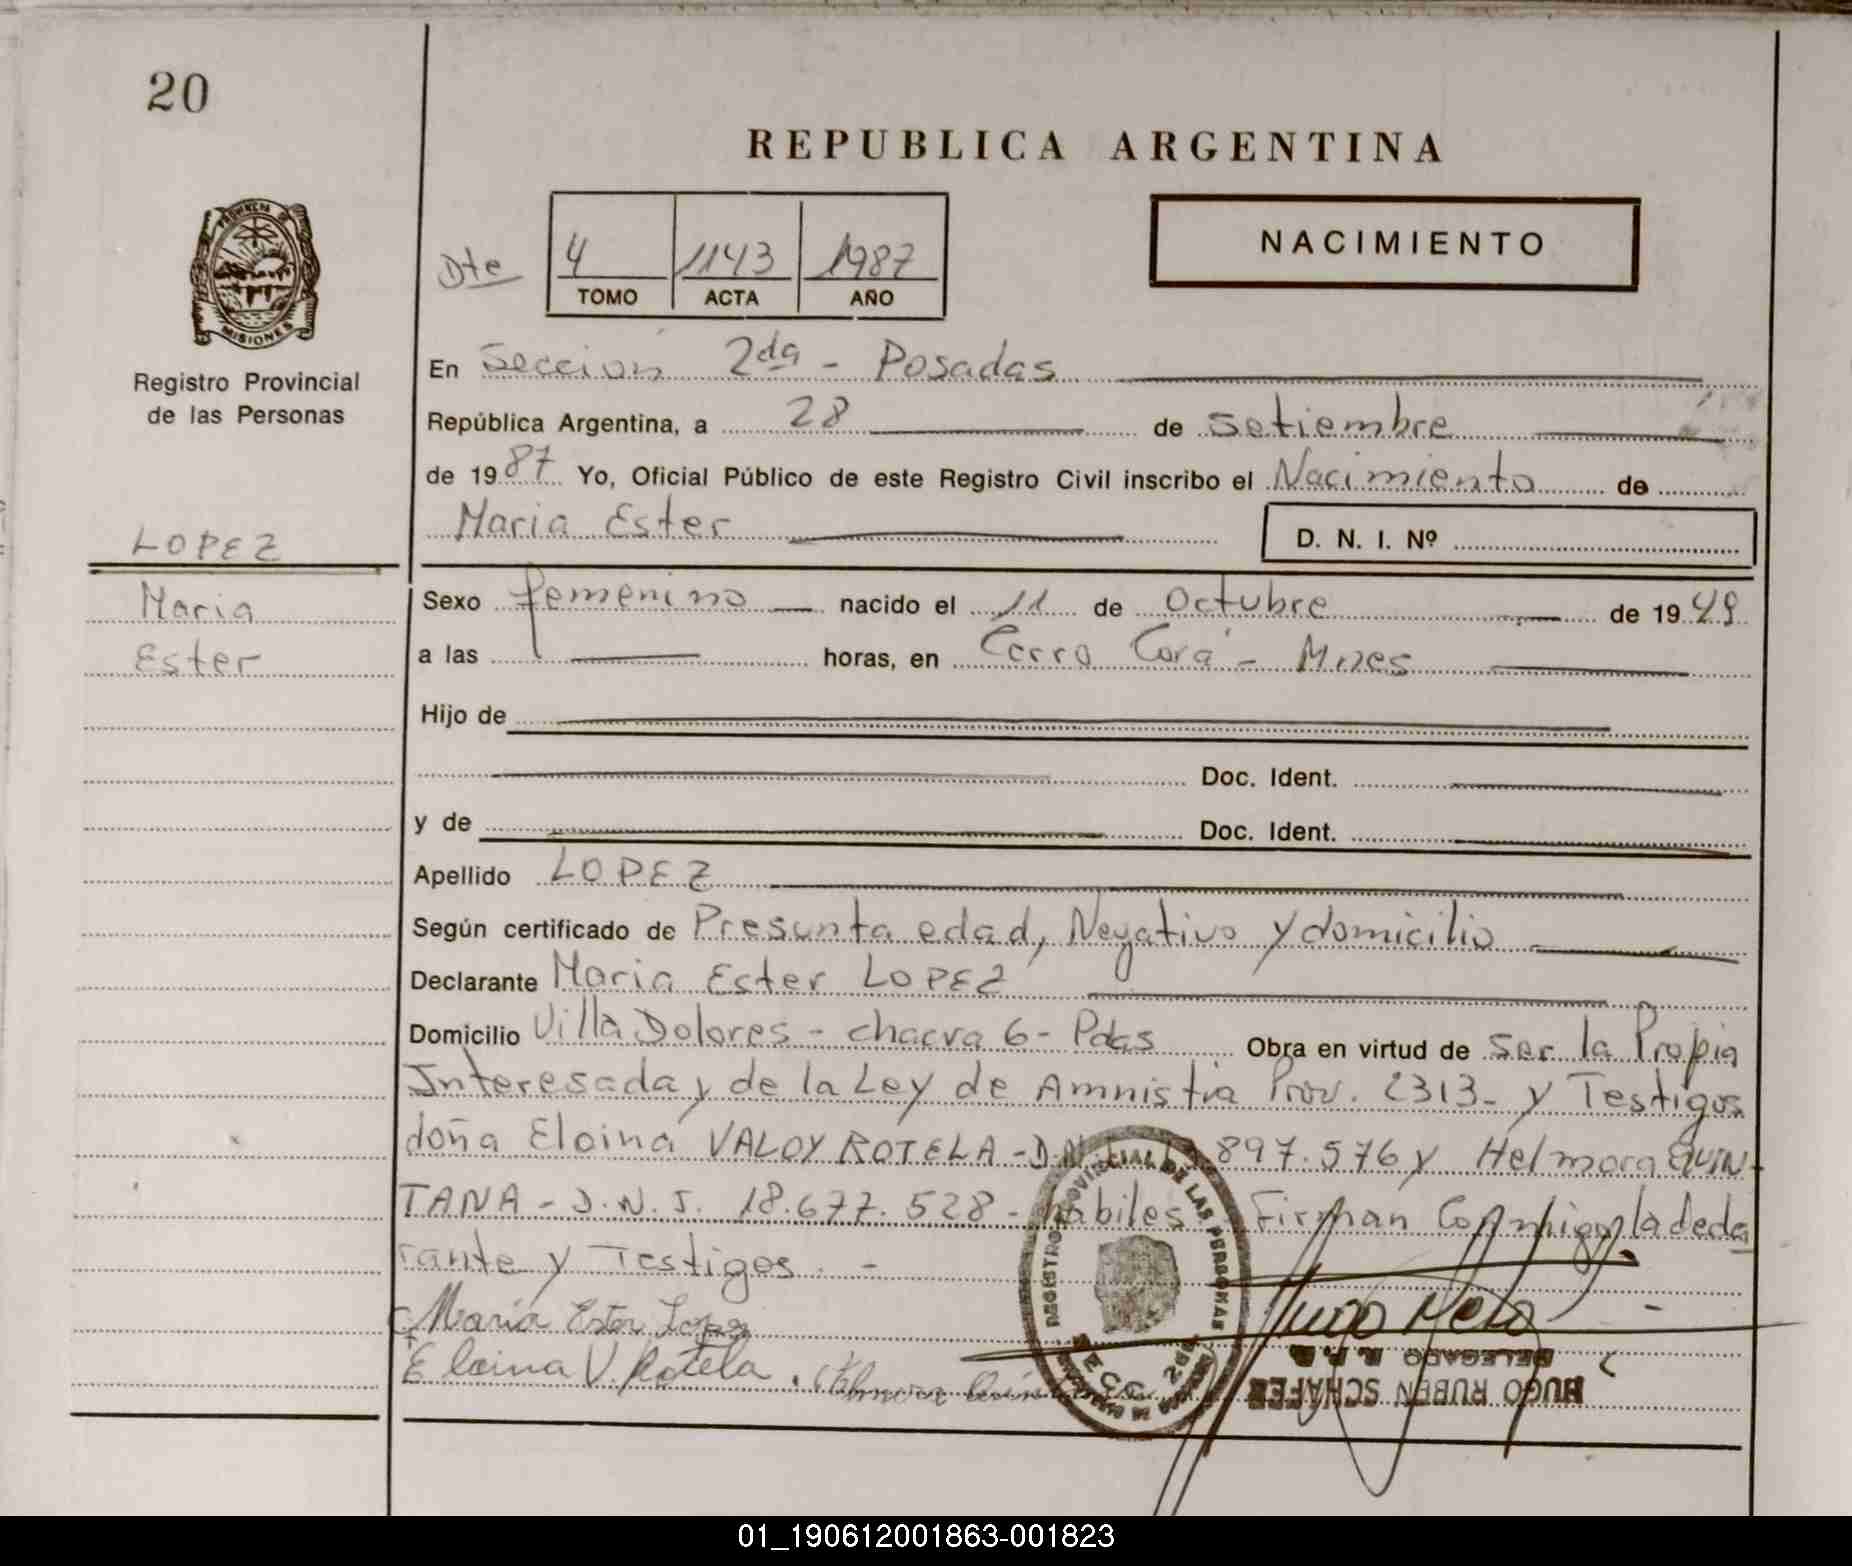 20
REPUBLICA ARGENTINA
PROVINCIA DE
MISIONES
Registro Provincial
de las Personas
Dte
4 1143 1987
TOMO ACTA AÑO
NACIMIENTO
En Sección 2da - Posadas
República Argentina, a 28 de Setiembre
de 1987 Yo, Oficial Público de este Registro Civil inscribo el Nacimiento de
Maria Ester D. N. I. Nº
LOPEZ
Maria
Ester
Sexo femenino nacido el 11 de Octubre de 1949
a las horas, en Cerro Corá - Mnes
Hijo de
Doc. Ident.
y de Doc. Ident.
Apellido LOPEZ
Según certificado de Presunta edad, Negativo y domicilio
Declarante Maria Ester LOPEZ
Domicilio Villa Dolores - chacra 6 - Pdas Obra en virtud de ser la Propia
Interesada y de la Ley de Amnistia Prov. 2313 - y Testigos
doña Eloina VALOY ROTELA - D.N. 897.576 y Helmora QUIN-
TANA - D.N.I. 18.677.528 - hábiles Firman Conmigo la decla
rante y Testigos. -
Maria Ester Lopez
Eloina V. Rotela.
REGISTRO PROVINCIAL DE LAS PERSONAS
SECC. 2da
DELEGADO R. P. P.
HUGO RUBEN SCHAFER
01_190612001863-001823